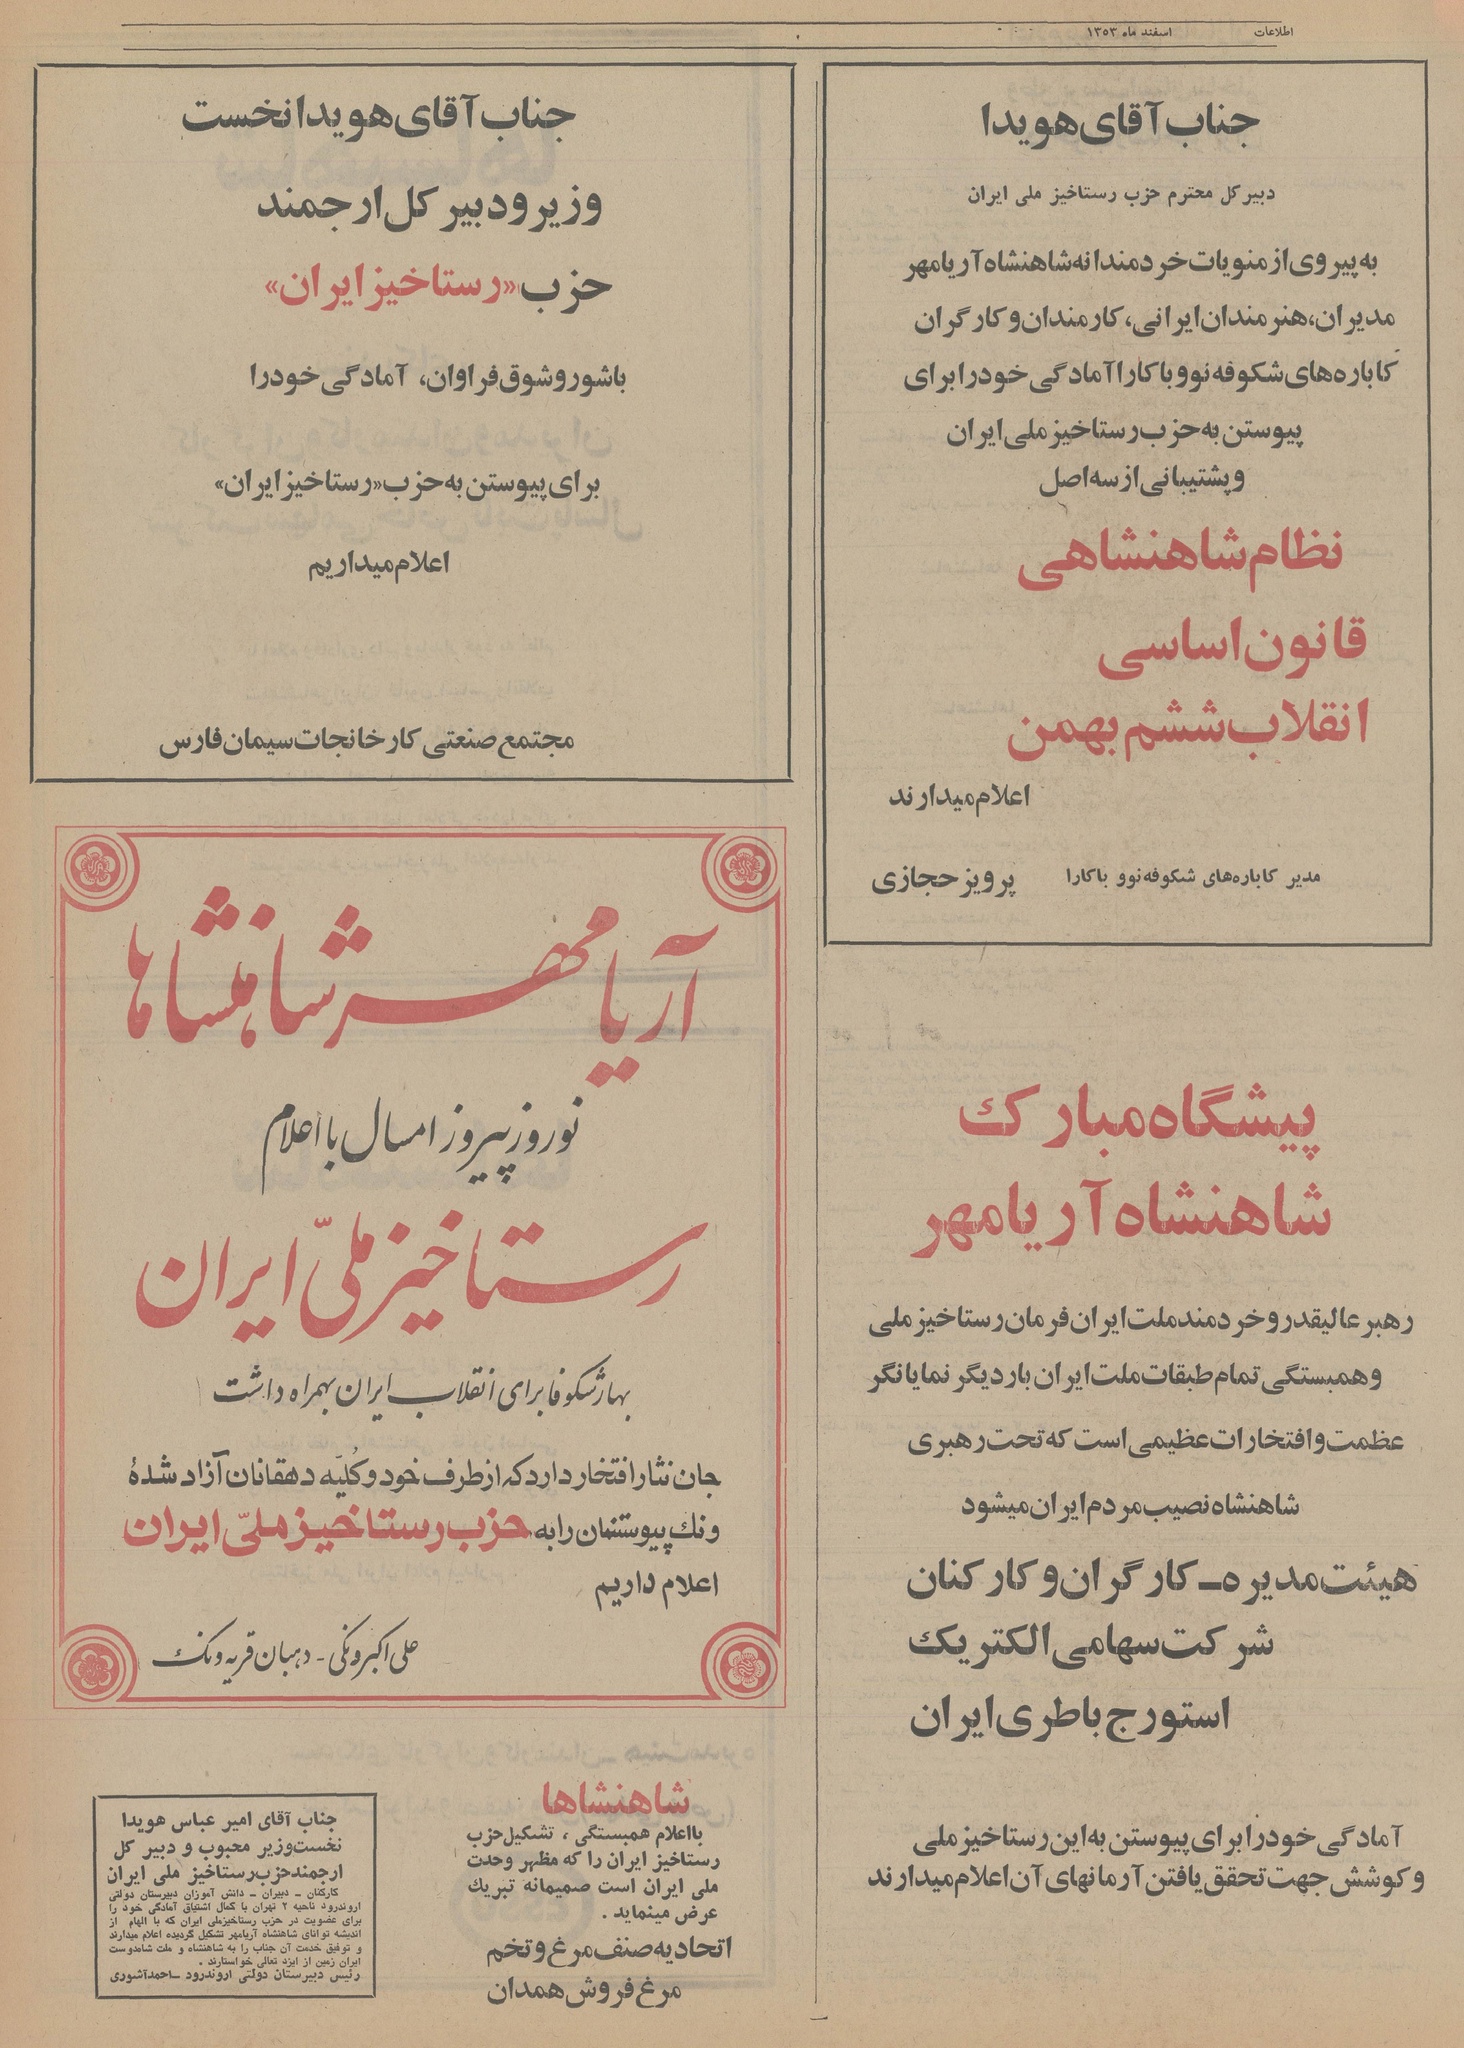 اطلاعات
اسفند ماه ۱۳۵۳
جناب آقای هویدا
دبیر کل محترم حزب رستاخیز ملی ایران
به پیروی از منویات خردمندانه شاهنشاه آریامهر
مدیران، هنرمندان ایرانی، کارمندان و کارگران
کاباره‌های شکوفه نو و باکارا آمادگی خود را برای
پیوستن به حزب رستاخیز ملی ایران
و پشتیبانی از سه اصل
نظام شاهنشاهی
قانون اساسی
انقلاب ششم بهمن
اعلام میدارند
مدیر کاباره‌های شکوفه نو و باکارا پرویز حجازی
پیشگاه مبارك
شاهنشاه آریامهر
رهبر عالیقدر و خردمند ملت ایران فرمان رستاخیز ملی
و همبستگی تمام طبقات ملت ایران بار دیگر نمایانگر
عظمت و افتخارات عظیمی است که تحت رهبری
شاهنشاه نصیب مردم ایران میشود
هیئت مدیره ـ کارگران و کارکنان
شرکت سهامی الکتریك
استورج باطری ایران
آمادگی خود را برای پیوستن به این رستاخیز ملی
و کوشش جهت تحقق یافتن آرمانهای آن اعلام میدارند
جناب آقای هویدا نخست
وزیر و دبیر کل ارجمند
حزب «رستاخیز ایران»
با شور و شوق فراوان، آمادگی خود را
برای پیوستن به حزب «رستاخیز ایران»
اعلام میداریم
مجتمع صنعتی کارخانجات سیمان فارس
آریامهر شاهنشاها
نوروز پیروز امسال با اعلام
رستاخیز ملّی ایران
بهار شکوفا برای انقلاب ایران بهمراه داشت
جان نثار افتخار دارد که از طرف خود و کُلیّه دهقانان آزاد شدهٔ
ونك پیوستنمان را به حزب رستاخیز ملّی ایران
اعلام داریم
علی اکبر ونکی - دهبان قریه ونك
شاهنشاها
با اعلام همبستگی ، تشکیل حزب
رستاخیز ایران را که مظهر وحدت
ملی ایران است صمیمانه تبریك
عرض مینماید .
اتحادیه صنف مرغ و تخم
مرغ فروش همدان
جناب آقای امیر عباس هویدا
نخست‌وزیر محبوب و دبیر کل
ارجمند حزب رستاخیز ملی ایران
کارکنان ـ دبیران ـ دانش آموزان دبیرستان دولتی
اروندرود ناحیه ۲ تهران با کمال اشتیاق آمادگی خود را
برای عضویت در حزب رستاخیزملی ایران که با الهام از
اندیشه توانای شاهنشاه آریامهر تشکیل گردیده اعلام میدارند
و توفیق خدمت آن جناب را به شاهنشاه و ملت شاهدوست
ایران زمین از ایزد تعالی خواستارند .
رئیس دبیرستان دولتی اروندرود ـ احمدآشوری